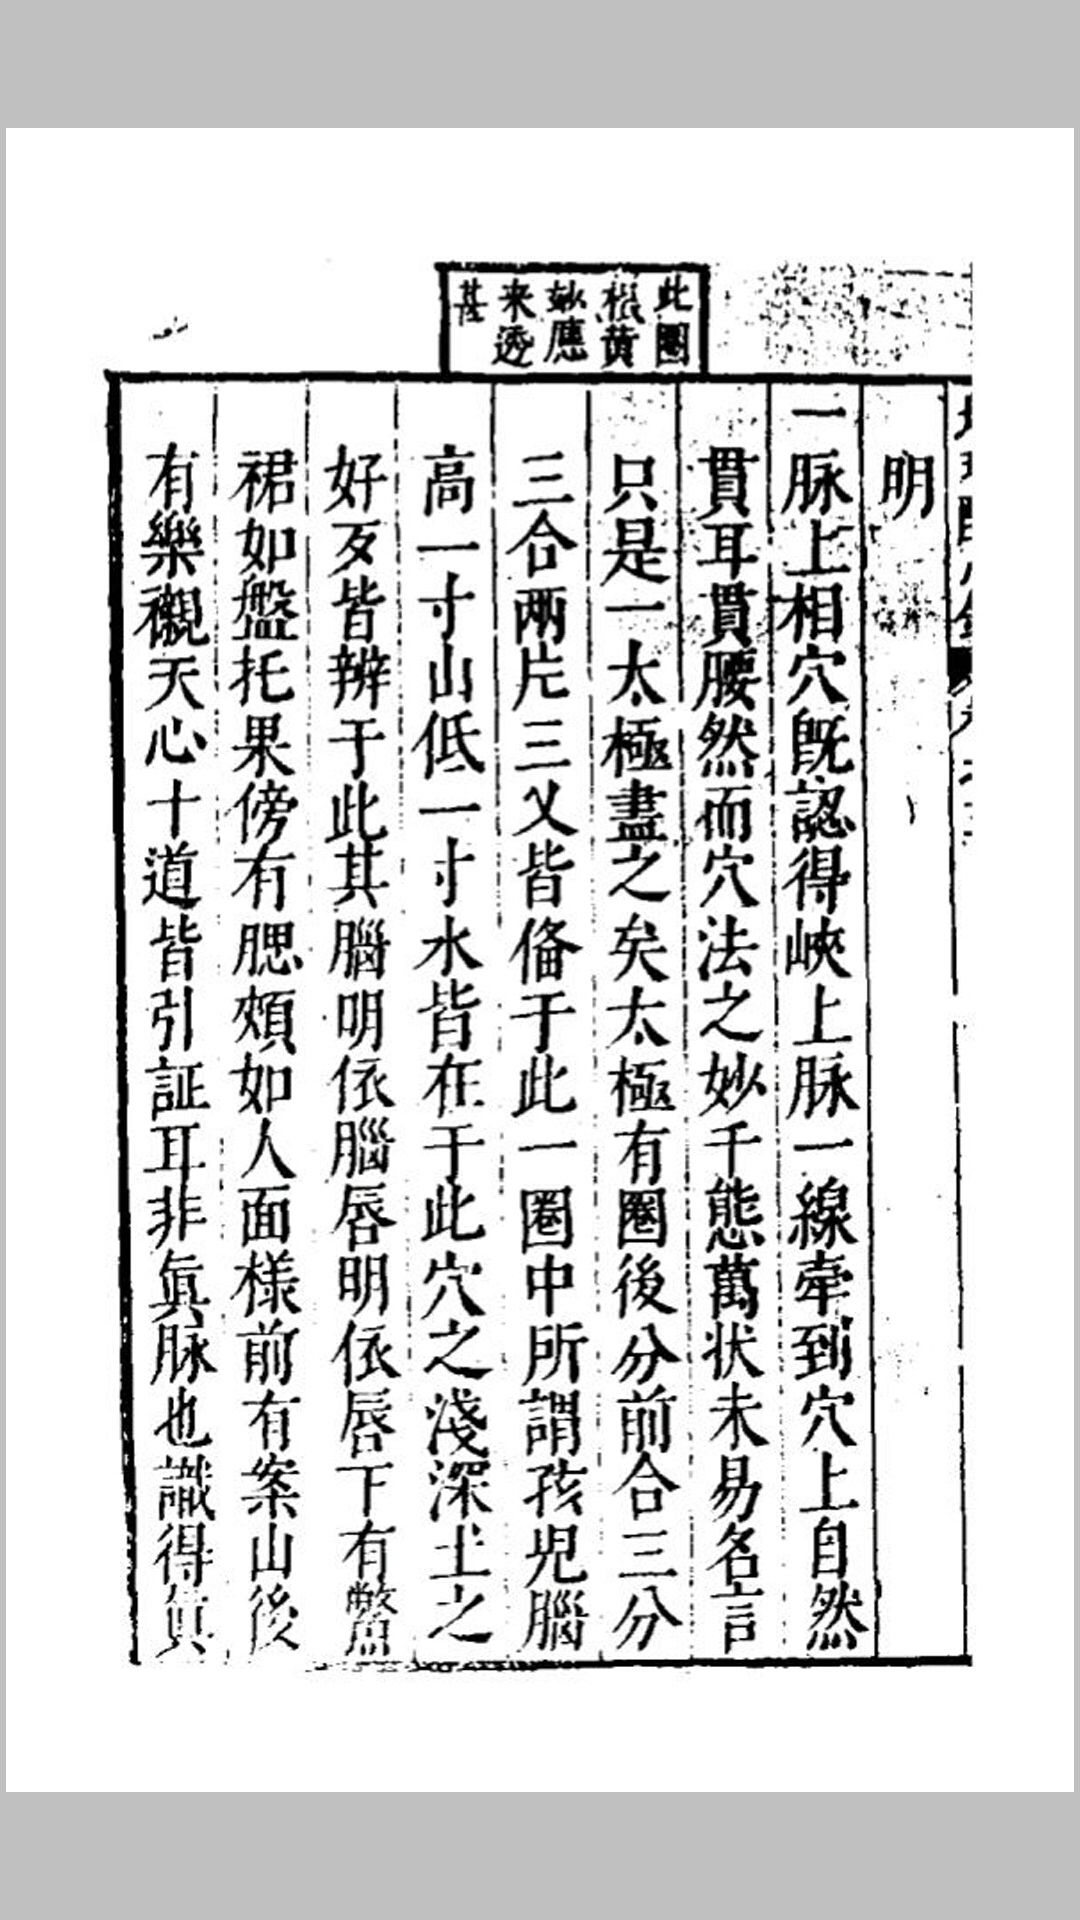 此圈
根黄
妙應
来透
甚
明
一脉上相穴既認得峽上脉一線牽到穴上自然
貫耳貫腰然而穴法之妙千態萬状未易名言
只是一太極盡之矣太極有圈後分前合三分
三合兩片三叉皆俻于此一圈中所謂孩児腦
高一寸山低一寸水皆在于此穴之淺深土之
好歹皆辨于此其腦明依腦唇明依唇下有
裙如盤托果傍有腮頰如人面樣前有案山後
有樂襯天心十道皆引証耳非眞脉也識得眞